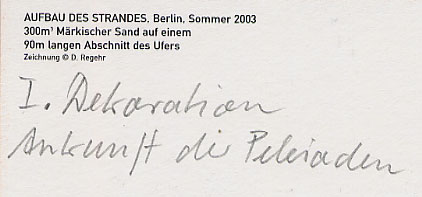 AUFBAU DES STRANDES. Berlin, Sommer 2003
300m³ Märkischer Sand auf einem
90m langen Abschnitt des Ufers
Zeichnung © D. Regehr
I. Dekoration
Ankunft die Pleiaden